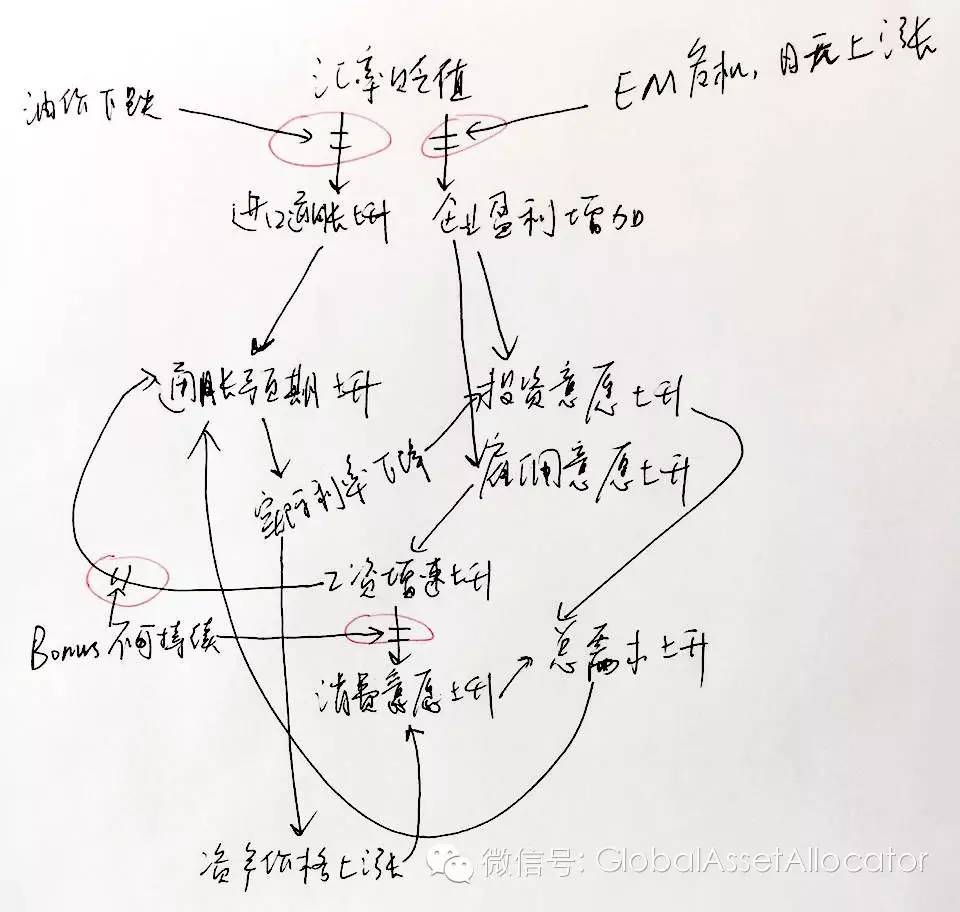 汇率贬值
EM危机，日元上涨
油价下跌
进口通胀上升
企业盈利增加
通胀预期上升
投资意愿上升
实际利率下降
雇佣意愿上升
工资增速上升
Bonus不可持续
总需求上升
消费意愿上升
资产价格上涨
微信号: GlobalAssetAllocator